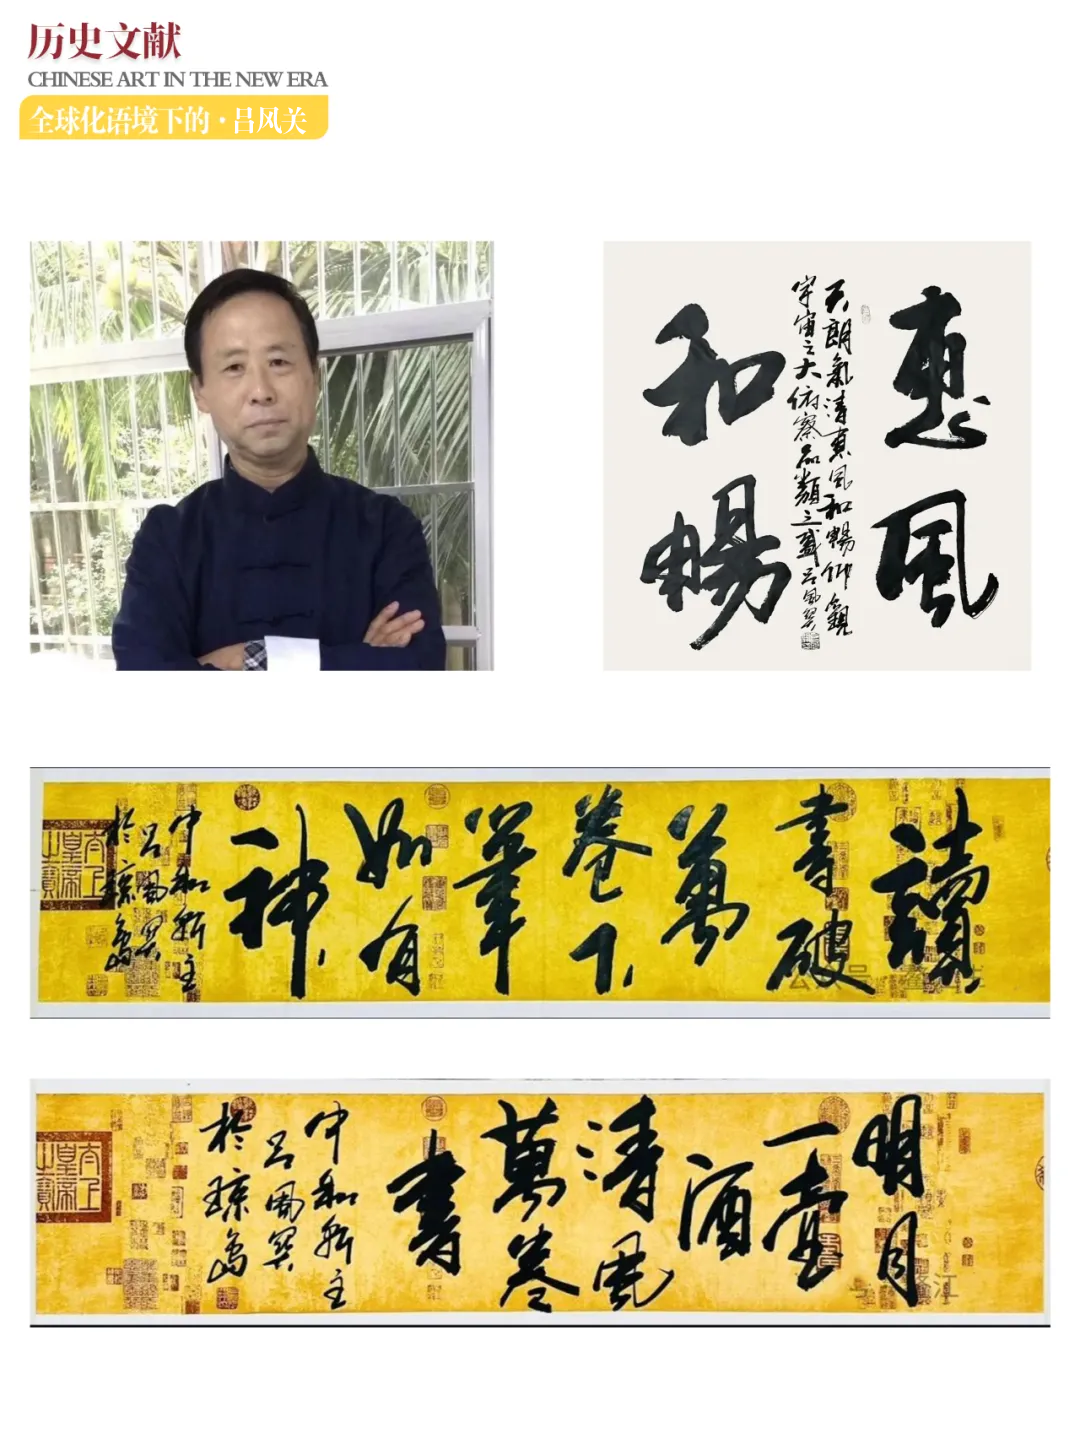 历史文献
CHINESE ART IN THE NEW ERA
全球化语境下的·吕风关
惠风
和畅
天朗氣清惠风和暢仰觀
宇宙之大俯察品類之盛吕風関
讀
書破
萬
卷下
筆
如有
神
中和軒主
吕風関
於琼島
明月
一壺
酒
清風
萬卷
書
中和軒主
吕風関
於琼島
太上
皇帝
之寳